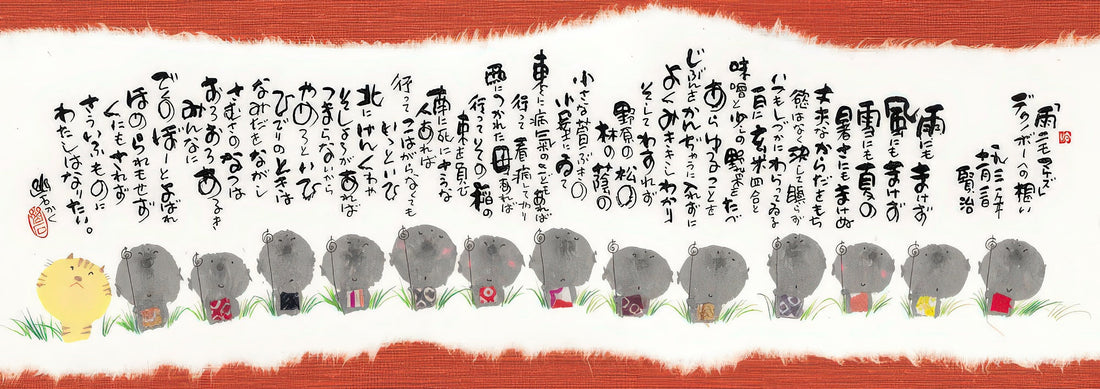 「雨ニモマケズ」
デクノボーへの想い
賢治
雨にもまけず
風にもまけず
雪にも夏の
暑さにもまけぬ
丈夫なからだをもち
欲はなく決して瞋らず
いつもしづかにわらってゐる
一日に玄米四合と
味噌と少しの野菜をたべ
あらゆることを
じぶんをかんぢゃうに入れずに
よくみききしわかり
そしてわすれず
野原の松の
林の蔭の
小さな萱ぶきの
小屋にゐて
東に病気のこどもあれば
行って看病してやり
西につかれた母あれば
行ってその稲の
束を負ひ
南に死にさうな
人あれば
行ってこはがらなくても
いゝといひ
北にけんくゎや
そしょうがあれば
つまらないから
やめろといひ
ひでりのときは
なみだをながし
さむさのなつは
おろおろあるき
みんなに
でくのぼーとよばれ
ほめられもせず
くにもされず
さういふものに
わたしはなりたい。